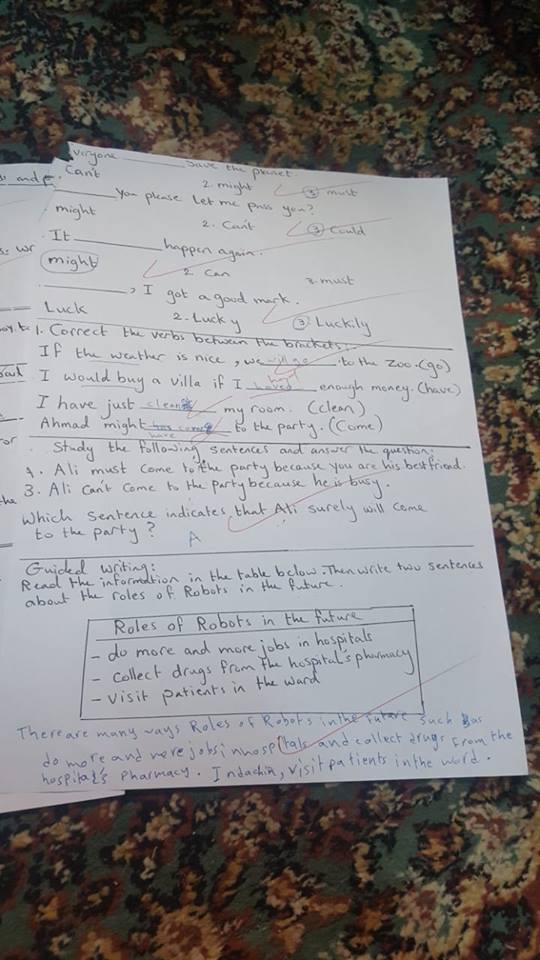 veryone ___ Save the planet.
Can't 2. might 3 must
___ You please let me pass you?
might 2. Can't 3 Could
It ___ happen again.
might 2. Can 3. must
___, I got a good mark.
Luck 2. Lucky 3 Luckily
1. Correct the verbs between the brackets:
If the weather is nice, we will go to the Zoo. (go)
I would buy a villa if I haved had enough money. (have)
I have just my room. (clean)
Ahmad might to the party. (Come)
Study the following sentences and answer the question:
1. Ali must come to the party because you are his best friend.
3. Ali can't come to the party because he is busy.
which sentence indicates that Ali surely will come
to the party? A
Guided writing:
Read the information in the table below. Then write two sentences
about the roles of Robots in the future.
Roles of Robots in the future
- do more and more jobs in hospitals
- collect drugs from the hospital's pharmacy
- visit patients in the ward
There are many ways Roles of Robots in the future such as
do more and more jobs in hospitals and collect drugs from the
hospital's pharmacy. , visit patients in the word.